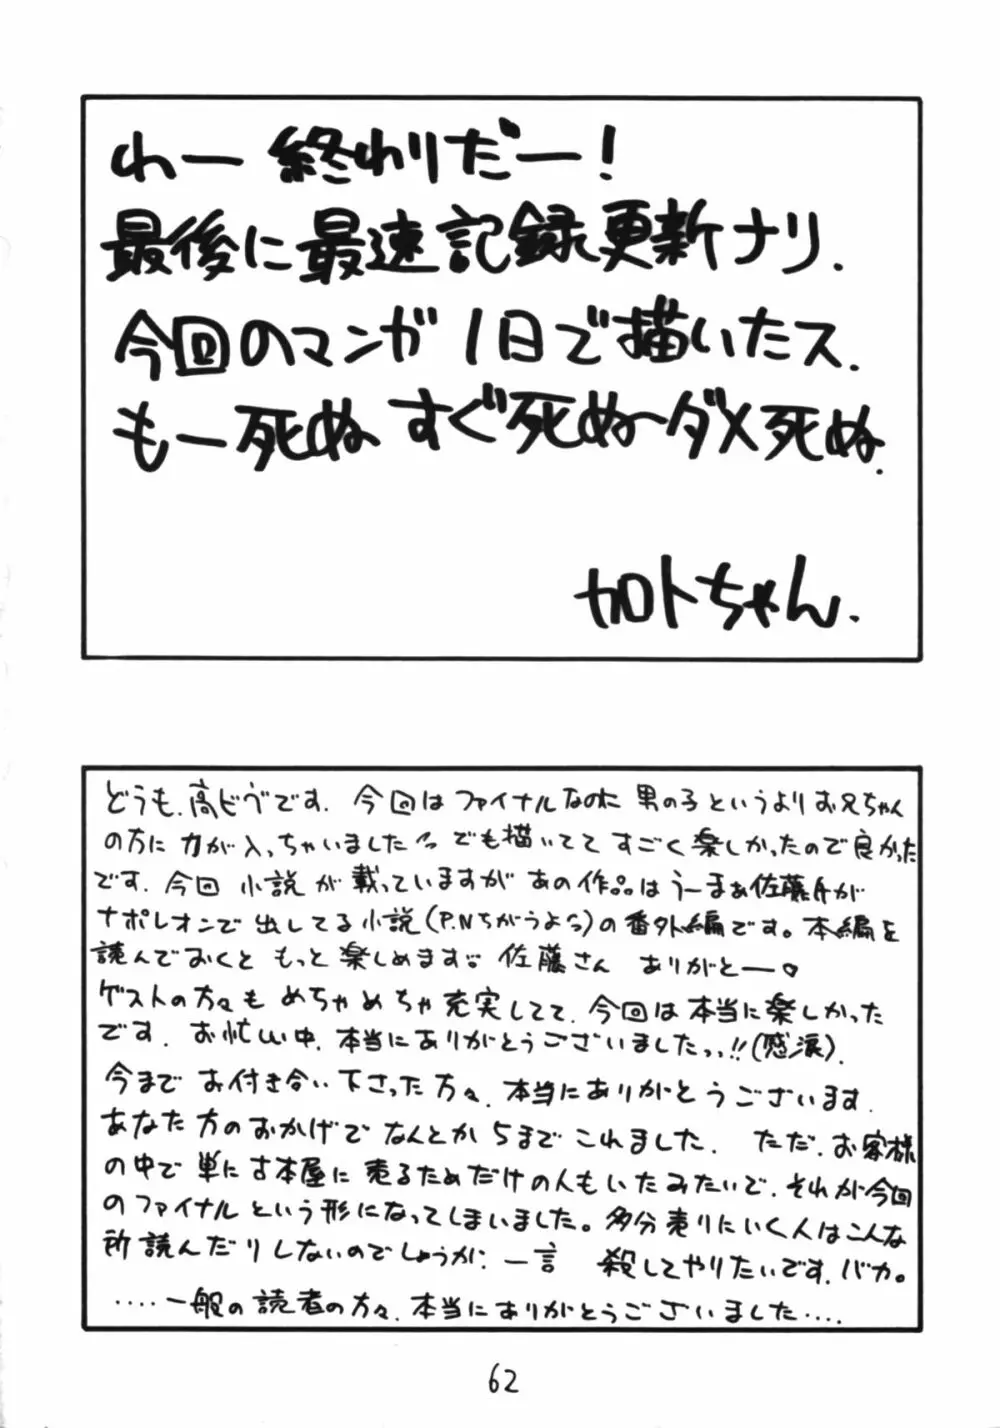 わー 終わりだー!
最後に最速記録更新ナリ.
今回のマンガ1日で描いたス.
もー死ぬ すぐ死ぬ〜ダメ死ぬ.
加トちゃん.
どうも、高ビヴです. 今回はファイナルなのに 男の子というよりお兄ちゃん
の方に力が入っちゃいました でも描いててすごく楽しかったので良かった
です. 今回 小説が載っていますが あの作品はうーまぁ佐藤斤が
ナポレオンで出してる小説(P.Nちがうよ)の番外編です。本編を
読んでおくと もっと楽しめます 佐藤さん ありがとー♡
ゲストの方々も めちゃめちゃ充実してて、今回は本当に楽しかった
です. お忙い中、本当にありがとうございましたっっ!!(感涙).
今まで お付き合い下さった方々、本当にありがとうございます.
あなた方のおかげで なんとか5まで これました. ただ、お客様
の中で 単に古本屋に売るためだけの人もいたみたいで、それが今回
のファイナルという形になってしまいました。多分売りにいく人はこんな
所読んだりしないのでしょうが、一言 殺してやりたいです.バカ。
....一般の読者の方々、本当にありがとうございました....
62